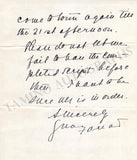 come to town again till
the 21st afternoon.
Please do not let me
fail to have the com-
pleted script before
then. I want to be
sure all is in order.
Sincerely